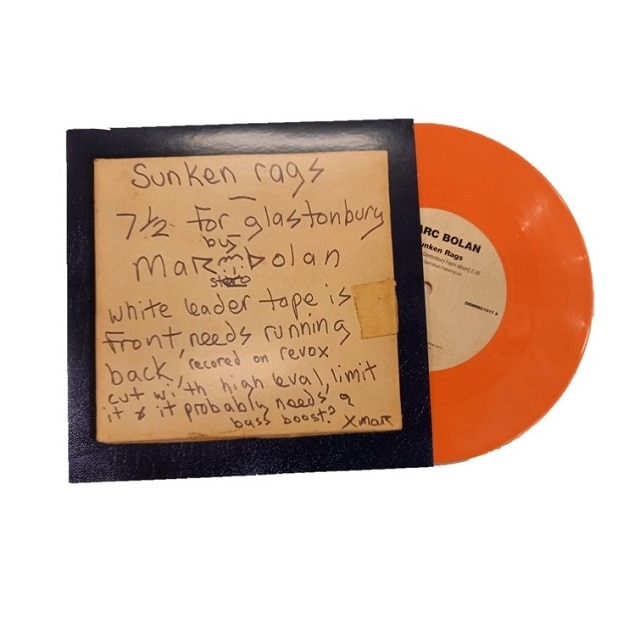 Sunken rags
7½ for glastonbury
by
Marc Bolan
stereo
white leader tape is
front, needs running
back, recored on revox
cut with high leval, limit
it & it probably needs a
bass boost? X marc
ARC BOLAN
unken Rags
DEMREC1017 A